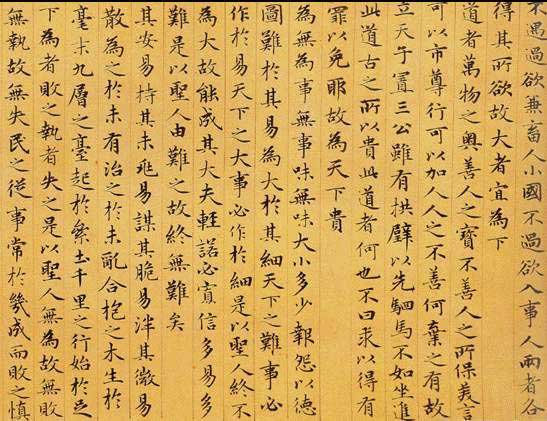 不過欲兼畜人小國不過欲入事人兩者各
得其所欲故大者宜為下
道者萬物之奧善人之寶不善人之所保美言
可以市尊行可以加人人之不善何棄之有故
立天子置三公雖有拱璧以先駟馬不如坐進
此道古之所以貴此道者何也不曰求以得有
罪以免耶故為天下貴
為無為事無事味無味大小多少報怨以德
圖難於其易為大於其細天下之難事必
作於易天下之大事必作於細是以聖人終不
為大故能成其大夫輕諾必寡信多易多
難是以聖人由難之故終無難矣
其安易持其未兆易謀其脆易泮其微易
散為之於未有治之於未亂合抱之木生於
毫末九層之臺起於累土千里之行始於足
下為者敗之執者失之是以聖人無為故無敗
無執故無失民之從事常於幾成而敗之慎